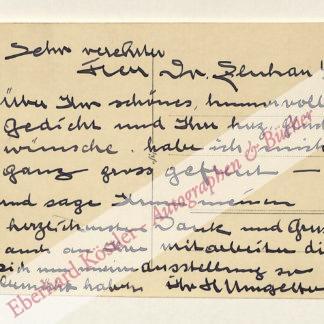 Sehr verehrter
Herr Dr. Elenhan!
Über Ihr schönes, humorvoll
gedicht und Ihre herz. Glück
wünsche habe ich mich
ganz gross gefreut –
und sage Ihnen meinen
herzlichsten Dank und Gruss
auch an Ihre mitarbeiter die
sich um meine ausstellung so
bemüht haben. Ihr H Ungelter
Eberhard Köstler Autographen & Bücher